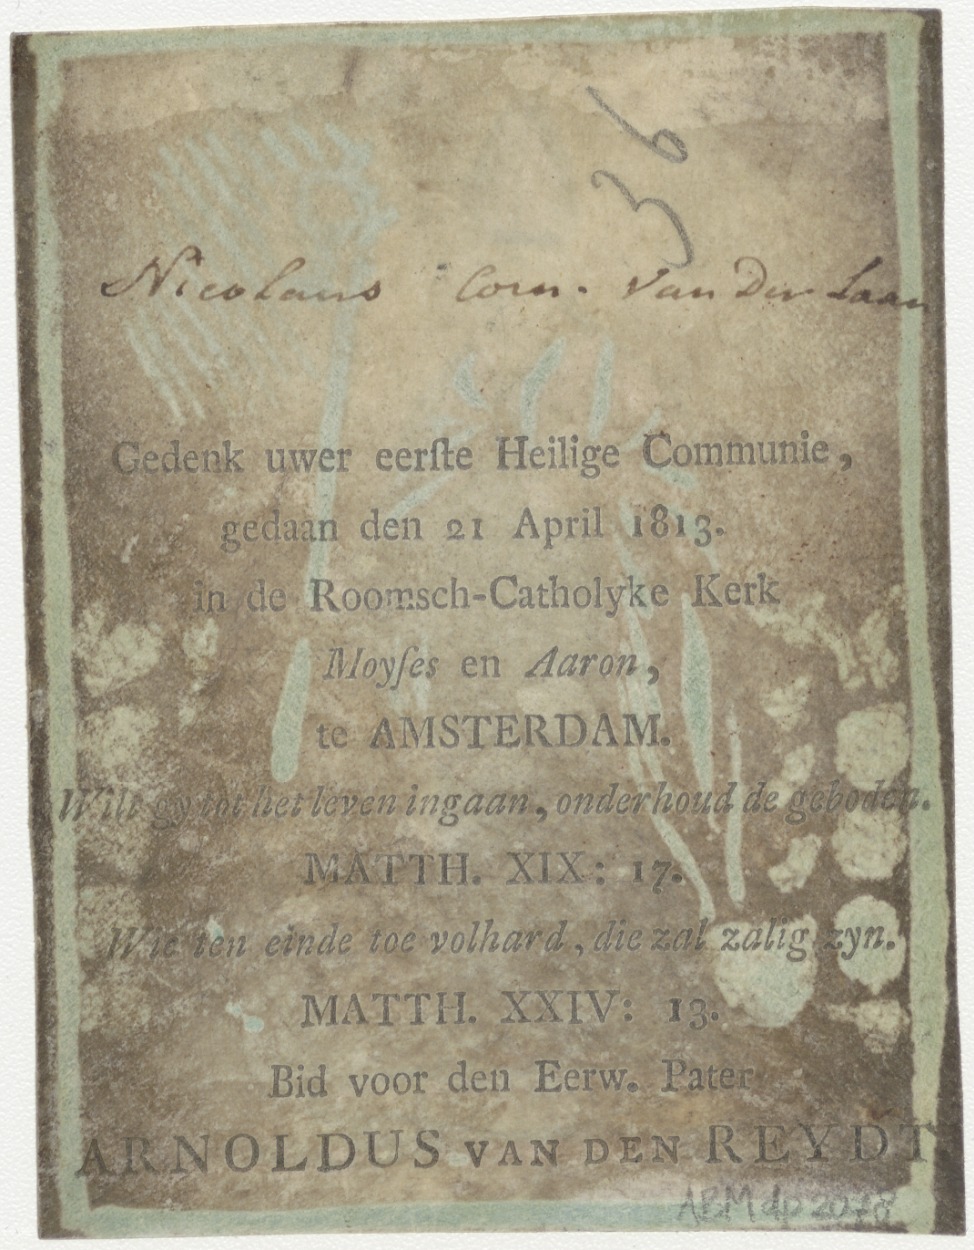 36
Nicolaus Corn. Van Der Laan
Gedenk uwer eerſte Heilige Communie,
gedaan den 21 April 1813.
in de Roomsch-Catholyke Kerk
Moyſes en Aaron,
te AMSTERDAM.
Wilt gy tot het leven ingaan, onderhoud de geboden.
MATTH. XIX: 17.
Wie ten einde toe volhard, die zal zalig zyn.
MATTH. XXIV: 13.
Bid voor den Eerw. Pater
ARNOLDUS VAN DEN REYDT
ABM dp 2078